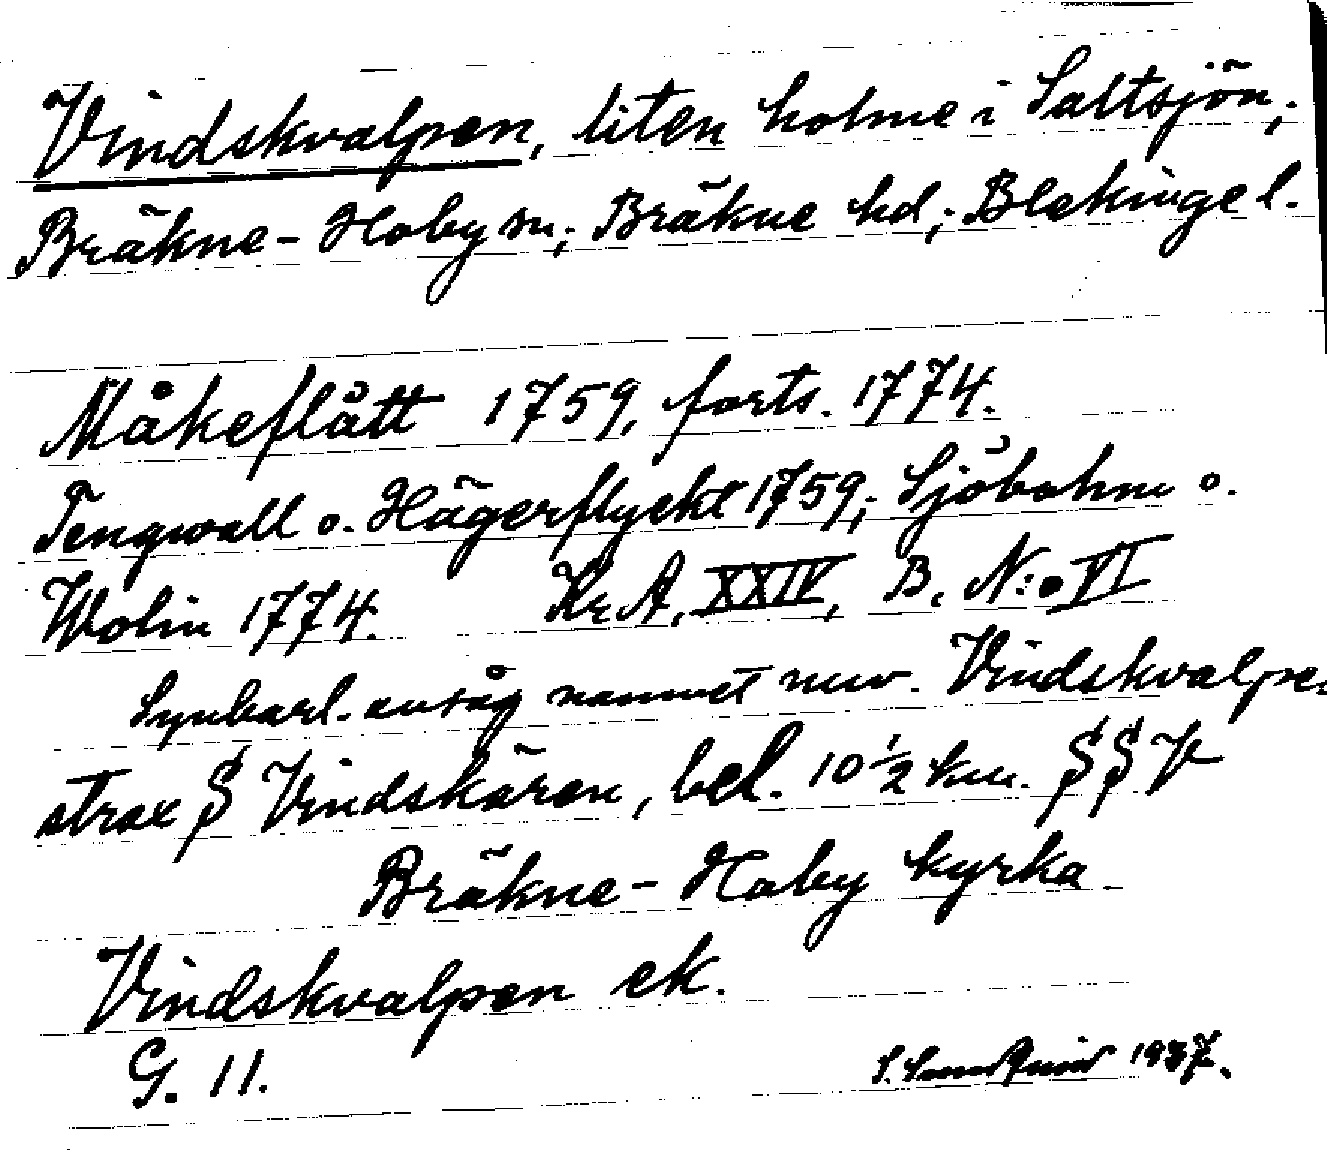 Vindskvalpen, liten holme i Saltsjön;
Bräkne-Hoby sn; Bräkne hd; Blekinge l.
Måkeflått 1759, forts. 1774.
Tengwall o. Hägerflyckt 1759; Sjöbohm o.
Wolin 1774. Kr A, XXIV, B. N:o VI
Synbarl. avsåg namnet nuv. Vindskvalpen
strax S Vindskären, bel. 10 1/2 km. SSV
Bräkne-Hoby kyrka
Vindskvalpen ek.
G. 11.
1937.